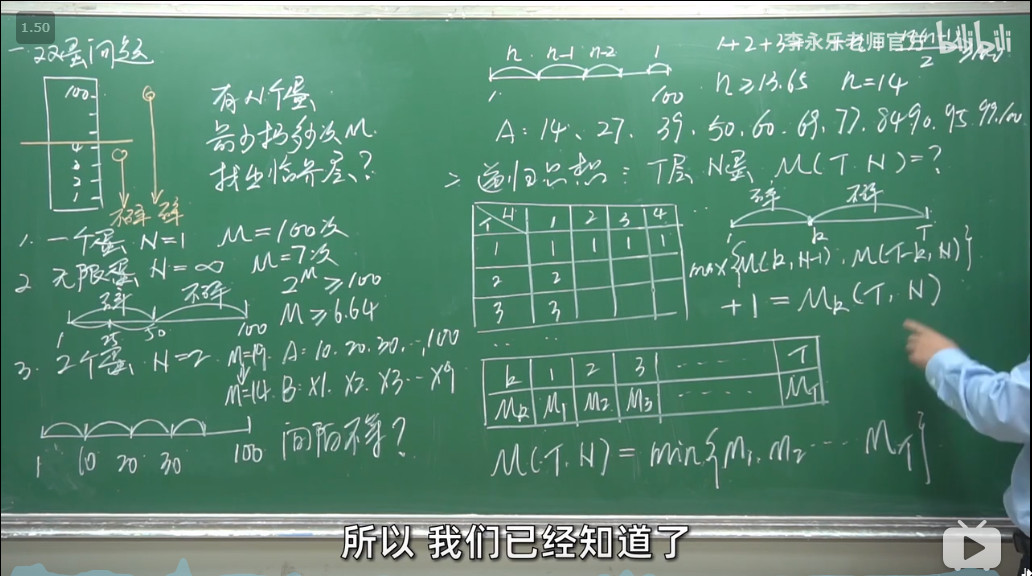 1.50
一 双蛋问题
100
4
3
2
1
不碎 碎
有N个蛋
最少扔多少次M
找出临界层?
1. 一个蛋 N=1 M=100次
2 无限蛋 N=∞ M=7次
2^M ≥100
M≥6.64
碎 不碎
1 25 50 100
3. 2个蛋 N=2
M=19. A: 10. 20. 30. ..., 100
M=14. B: X1. X2. X3. ... X9
1 10 20 30 100
间隔不等?
n n-1 n-2 1
1 100
1+2+3+
李永乐老师官方
bilibili
n≥13.65 n=14
A: 14、27、39、50、60、69、77、84 90、95、99、100
二 递归思想: T层 N蛋 M(T.N)=?
T N 1 2 3 4
1 1 1 1 1
2 2
3 3
... ...
碎 不碎
1 k T
max{M(k,N-1), M(T-k,N)}
+1=M_k(T,N)
k 1 2 3 ---- T
M_k M_1 M_2 M_3 ---- M_T
M(T.N)=min{M_1, M_2 ... M_T}
所以 我们已经知道了